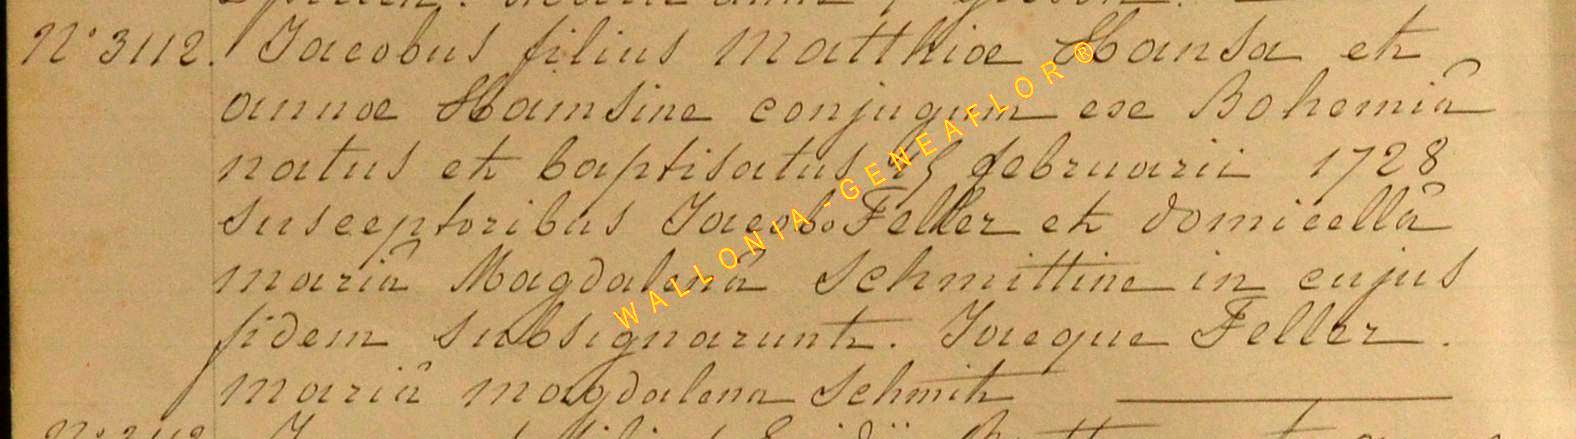 N° 3112. Jacobus filius Matthiæ Hansa et
annæ Hamsine conjugum exe Bohemiâ
natus et baptisatus februarii 1728
susceptoribus Jacobo Feller et domicellâ
mariâ Magdalenâ Schmittine in cujus
fidem subsignarunt. Jacque Feller.
mariâ magdalena Schmit
WALLONIA-GENEAFLOR®